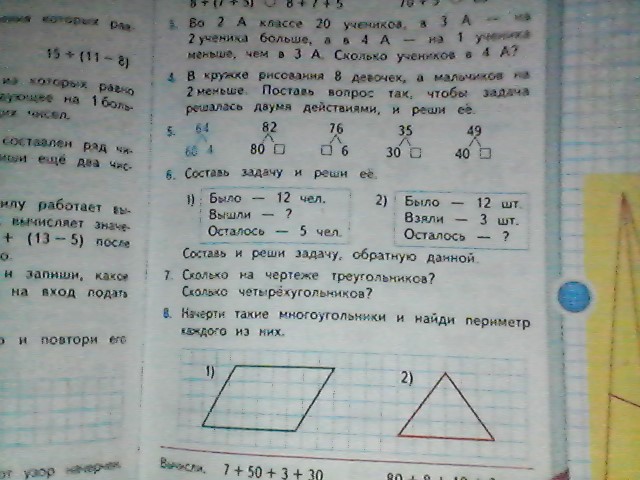 15 + (11 − 8)
из которых равно
на 1 боль-
составлен ряд чи-
ещё два чис-
работает вы-
вычисляет значе-
+ (13 − 5) после
и запиши, какое
на вход подать
и повтори его
узор начерчен
8 + 7 + 5
3. Во 2 А классе 20 учеников, в 3 А — на
2 ученика больше, а в 4 А — на 1 ученика
меньше, чем в 3 А. Сколько учеников в 4 А?
4. В кружке рисования 8 девочек, а мальчиков на
2 меньше. Поставь вопрос так, чтобы задача
решалась двумя действиями, и реши её.
5. 64 82 76 35 49
60 4 80 □ □ 6 30 □ 40 □
6. Составь задачу и реши её.
1) Было — 12 чел.
Вышли — ?
Осталось — 5 чел.
2) Было — 12 шт.
Взяли — 3 шт.
Осталось — ?
Составь и реши задачу, обратную данной.
7. Сколько на чертеже треугольников?
Сколько четырёхугольников?
8. Начерти такие многоугольники и найди периметр
каждого из них.
1) 2)
Вычисли. 7 + 50 + 3 + 30